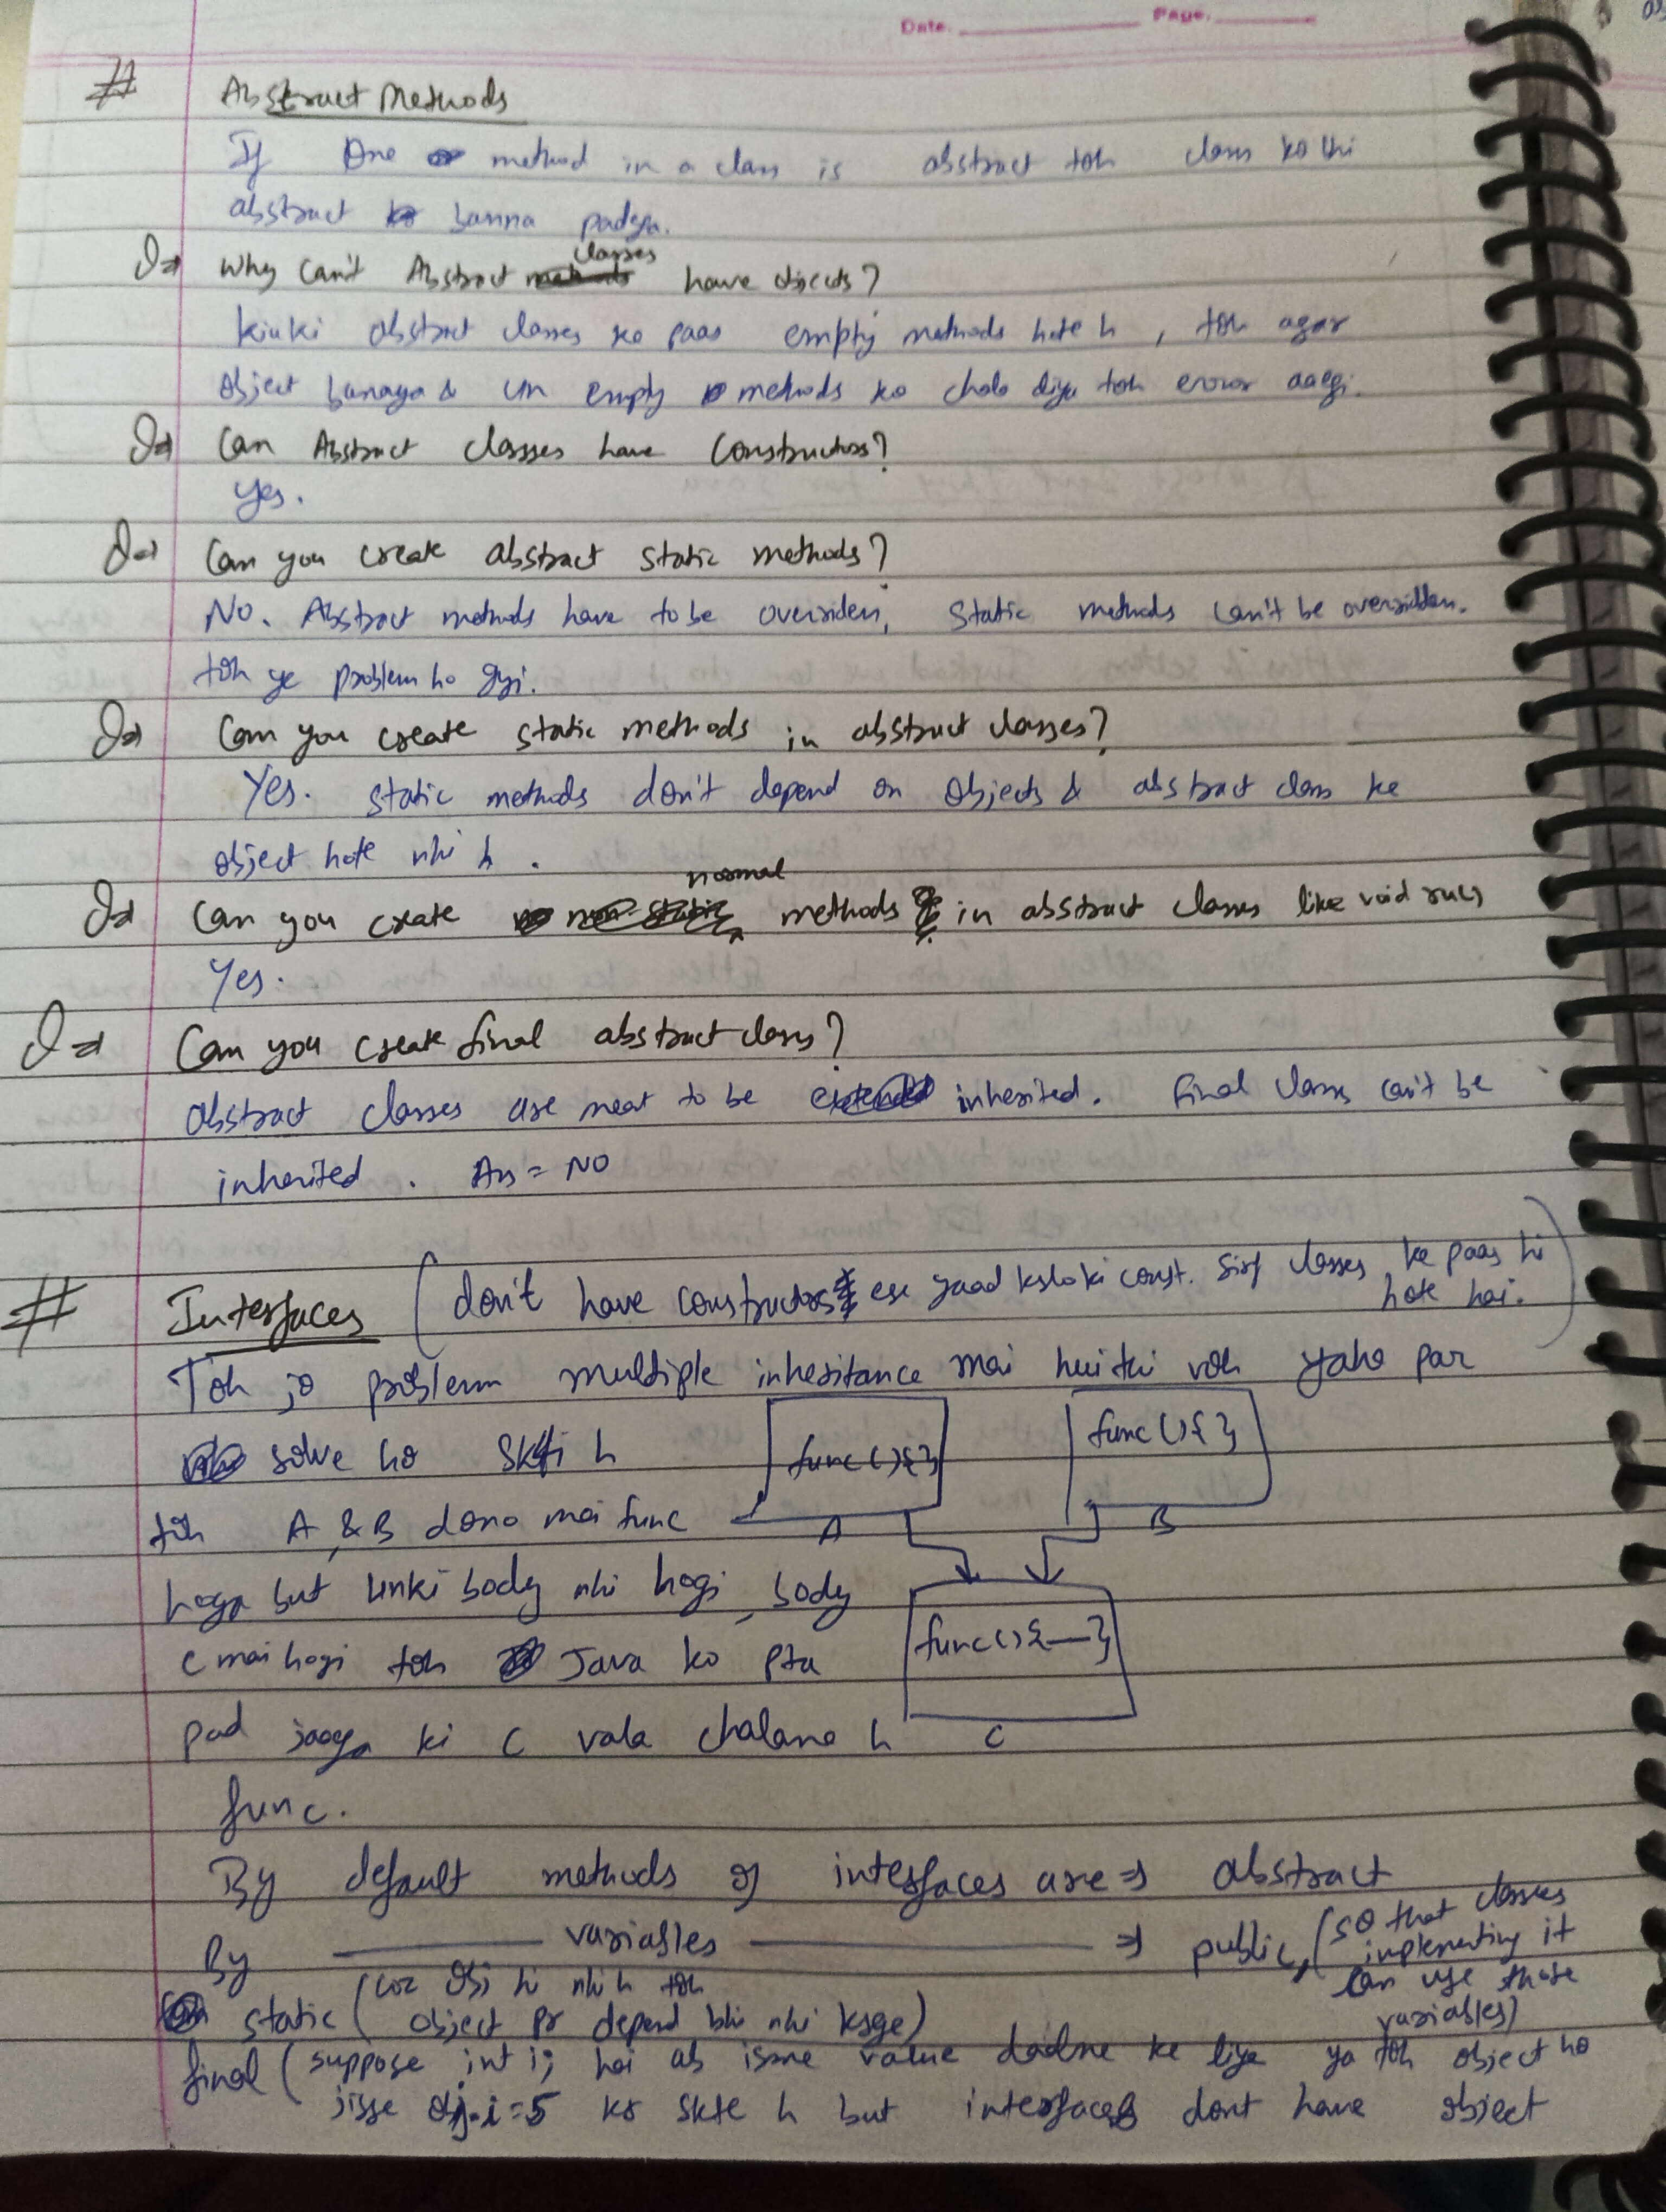 Date. Page.
# Abstract Methods
If One method in a class is abstract toh class ko bhi
abstract banna padega.
Q⇒ Why can't Abstract classes have objects?
kiuki abstract classes ke paas empty methods hote h, toh agar
object banaya & un empty methods ko chala diya toh error aaegi.
Q⇒ Can Abstract classes have Constructors?
Yes.
Q⇒ Can you create abstract static methods?
No. Abstract methods have to be overriden, static methods can't be overridden.
toh ye problem ho gyi.
Q⇒ Can you create static methods in abstract classes?
Yes. static methods don't depend on Objects & abstract class ke
object hote nhi h.
Q⇒ Can you create normal methods in abstract classes like void
Yes.
Q⇒ Can you create final abstract class?
abstract classes are meat to be inherited. final class can't be
inherited. Ans = NO
# Interfaces (don't have constructors ese yaad kslo ki const. sirf classes ke paas hi
hote hai.)
Toh jo problem multiple inheritance mai hui thi voh yaha par
solve ho skti h
func(){} func(){}
toh A & B dono mai func
A B
hoga but unki body nhi hogi, body
C mai hogi toh Java ko pta
func(){—}
pad jaayga ki C vala chalana h
C
func.
By default methods of interfaces are ⇒ abstract
By ——— variables ——— ⇒ public, (so that classes
implementing it
can use those
variables)
static (coz obj hi nhi h toh
object pr depend bhi nhi krge)
final (suppose int i; hai ab isme value daalne ke liye ya toh object ho
jisse obj.i=5 kr skte h but interfaces dont have object